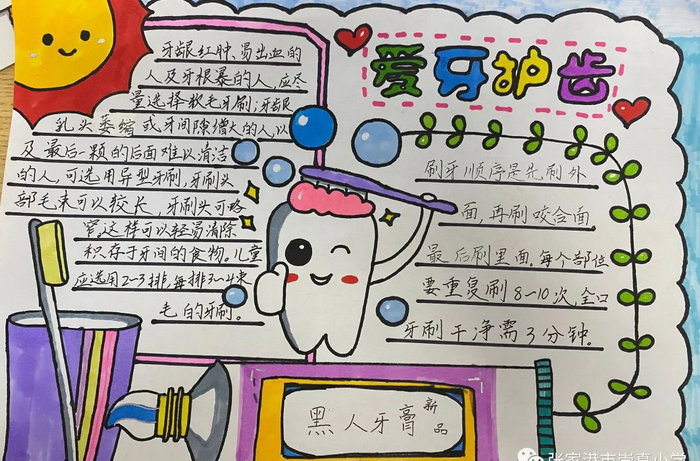 爱牙护齿
牙龈红肿、易出血的
人及牙根暴的人,应尽
量选择软毛牙刷;牙龈
乳头萎缩或牙间隙增大的人,以
及最后一颗的后面难以清洁
的人,可选用异型牙刷,牙刷头
部毛束可以较长,牙刷头可略
窄,这样可以轻易清除
积存于牙间的食物。儿童
应选用2~3排,每排3~4束
毛的牙刷。
刷牙顺序是先刷外
面,再刷咬合面
最后刷里面,每个部位
要重复刷8-10次,全口
牙刷干净需3分钟。
黑人牙膏
新品
张家港市崇真小学